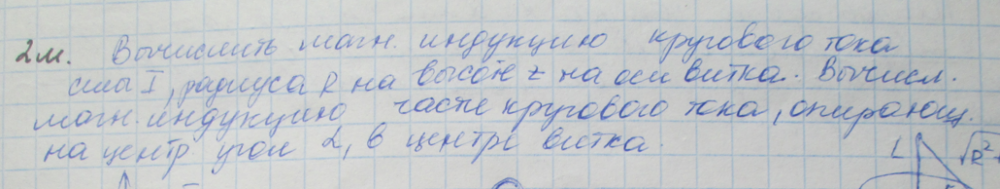 2м. Вычислить магн. индукцию кругового тока
силы I, радиуса R на высоте z на оси витка. Вычисл.
магн. индукцию части кругового тока, опирающ.
на центр угол α, в центре витка.
L √R²